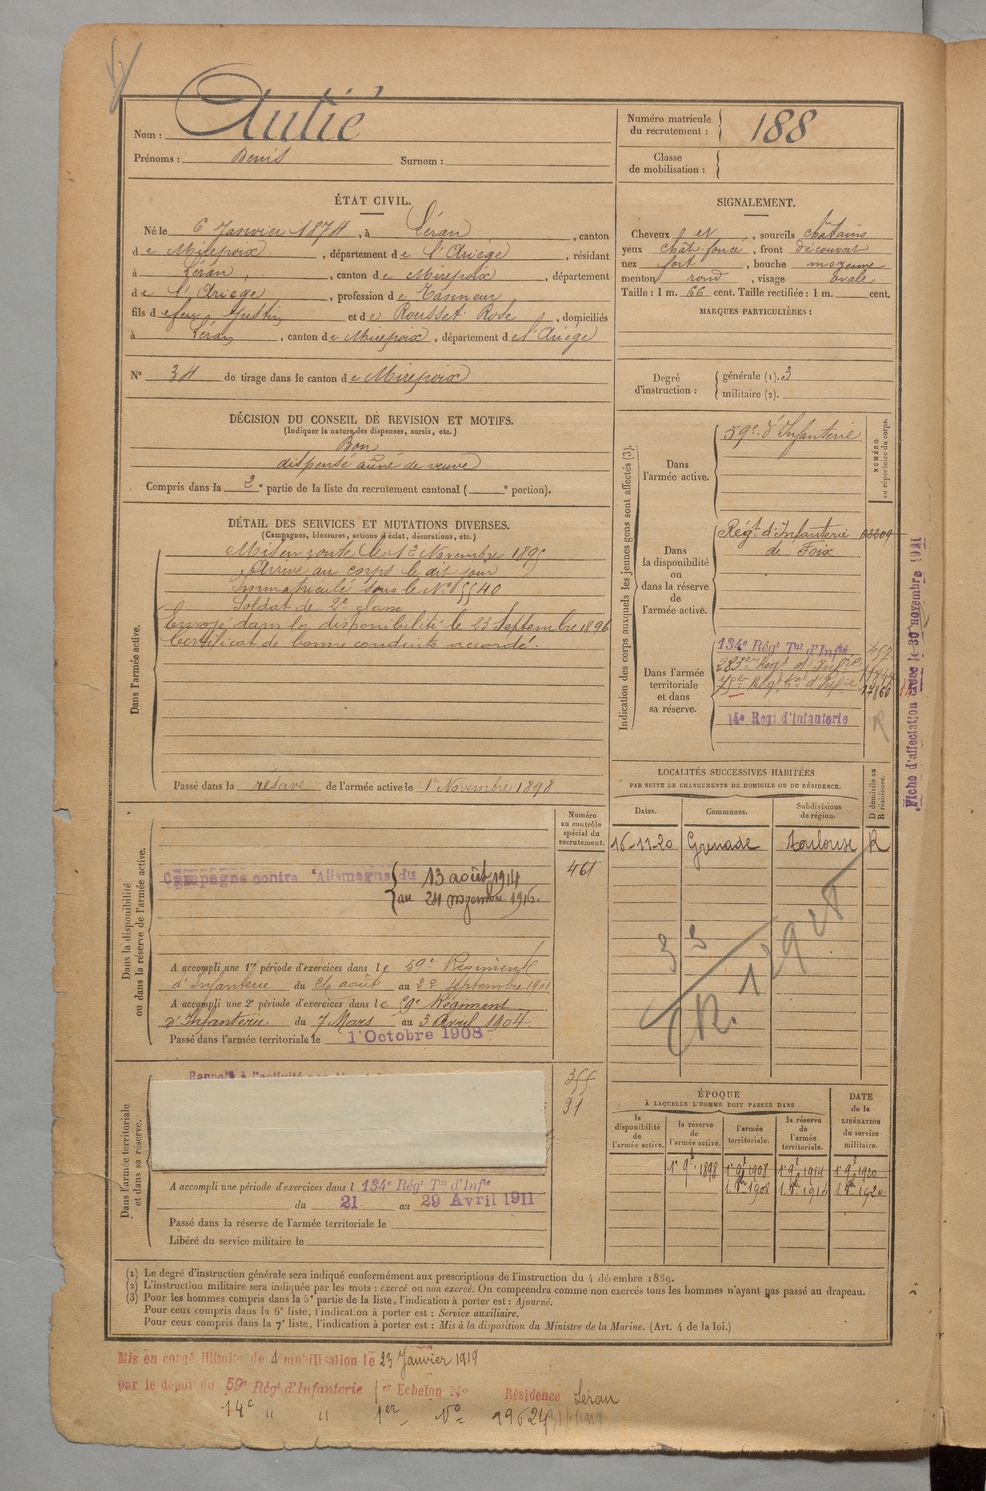 Nom : Autié
Prénoms : Denis Surnom :
Numéro matricule du recrutement : 188
Classe de mobilisation :
ÉTAT CIVIL.
Né le 6 Janvier 1874, à Léran, canton
de Mirepoix, département de l'Ariège, résidant
à Léran, canton de Mirepoix, département
de l'Ariège, profession de Tanneur
fils de feu Justin et de Rousset Rose, domiciliés
à Léran, canton de Mirepoix, département de l'Ariège
N° 34 de tirage dans le canton de Mirepoix
SIGNALEMENT.
Cheveux et, sourcils châtains
yeux chât. foncé, front découvert
nez fort, bouche moyenne
menton rond, visage ovale
Taille : 1 m. 66 cent. Taille rectifiée : 1 m. cent.
MARQUES PARTICULIÈRES :
Degré d'instruction : générale (1). 3
militaire (2).
DÉCISION DU CONSEIL DE REVISION ET MOTIFS.
(Indiquer la nature des dispenses, sursis, etc.)
Bon
dispensé aîné de veuve
Compris dans la 2e partie de la liste du recrutement cantonal ( e portion).
DÉTAIL DES SERVICES ET MUTATIONS DIVERSES.
(Campagnes, blessures, actions d'éclat, décorations, etc.)
Dans l'armée active.
Mis en route le 13 Novembre 1895
Arrivé au corps le dit jour
Immatriculé sous le N° 5540
Soldat de 2e classe
Envoyé dans la disponibilité le 23 Septembre 1896
Certificat de bonne conduite accordé.
Passé dans la réserve de l'armée active le 1er Novembre 1898
Indication des corps auxquels les jeunes gens sont affectés (3).
NUMÉRO au répertoire du corps.
Dans l'armée active.
59e d'Infanterie
Dans la disponibilité ou dans la réserve de l'armée active.
Régt d'Infanterie
de Foix
Dans l'armée territoriale et dans sa réserve.
134e Régt Tal d'Infie
14e Régt d'Infanterie
R
Fiche d'affectation créée le 30 novembre 1921
LOCALITÉS SUCCESSIVES HABITÉES
PAR SUITE DE CHANGEMENTS DE DOMICILE OU DE RÉSIDENCE.
Dates. Communes. Subdivisions de région. D domicile ou R résidence.
16-11-20 Grenade Toulouse R
Dans la disponibilité ou dans la réserve de l'armée active.
Numéro au contrôle spécial du recrutement.
461
Campagne contre l'Allemagne du 13 août 1914
au 24 novembre 1916.
A accompli une 1re période d'exercices dans le 59e Régiment
d'Infanterie du 26 août au 22 septembre 1901
A accompli une 2e période d'exercices dans le 59e Régiment
d'Infanterie du 7 Mars au 3 Avril 1904
Passé dans l'armée territoriale le 1er Octobre 1908
Dans l'armée territoriale et dans sa réserve.
Rappelé à l'activité
355
31
A accompli une période d'exercices dans l 134e Régt Tal d'Infie
du 21 au 29 Avril 1911
Passé dans la réserve de l'armée territoriale le
Libéré du service militaire le
ÉPOQUE
À LAQUELLE L'HOMME DOIT PASSER DANS
la disponibilité de l'armée active.
la réserve de l'armée active.
l'armée territoriale.
la réserve de l'armée territoriale.
DATE de la LIBÉRATION du service militaire.
(1) Le degré d'instruction générale sera indiqué conformément aux prescriptions de l'instruction du 4 décembre 1889.
(2) L'instruction militaire sera indiquée par les mots : exercé ou non exercé. On comprendra comme non exercés tous les hommes n'ayant pas passé au drapeau.
(3) Pour les hommes compris dans la 5e partie de la liste, l'indication à porter est : Ajourné.
Pour ceux compris dans la 6e liste, l'indication à porter est : Service auxiliaire.
Pour ceux compris dans la 7e liste, l'indication à porter est : Mis à la disposition du Ministre de la Marine. (Art. 4 de la loi.)
Mis en congé illimité de démobilisation le 23 Janvier 1919
par le dépôt du 59e Régt d'Infanterie 1er Echelon N° Résidence Léran
14e " " 1er N°